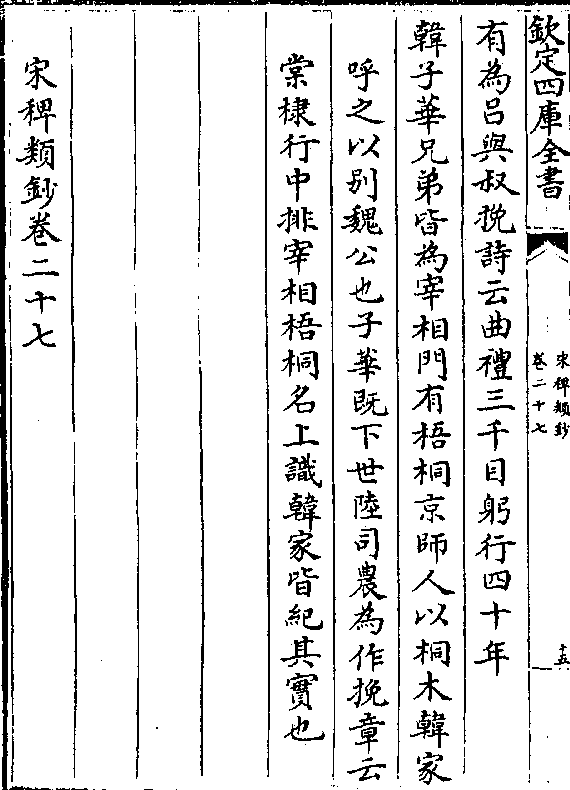 欽定四庫全書
宋稗類鈔
卷二十七
十五
有為呂與叔挽詩云曲禮三千目躬行四十年
韓子華兄弟皆為宰相門有梧桐京師人以桐木韓家
呼之以別魏公也子華既下世陸司農為作挽章云
棠棣行中排宰相梧桐名上識韓家皆紀其實也
宋稗類鈔卷二十七